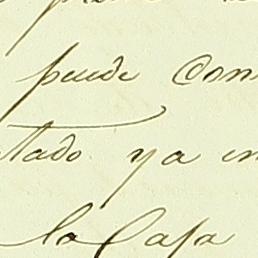 puede Con
tado ya en
la Casa